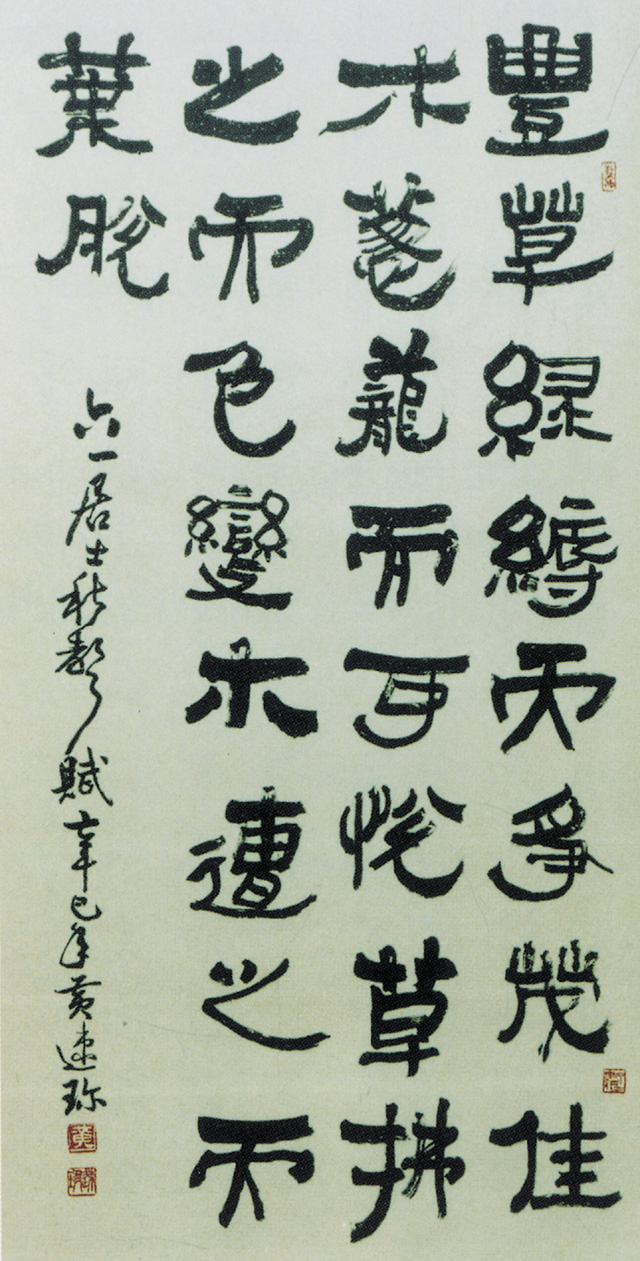 豐草綠縟而爭茂佳
木蔥蘢而可悅草拂
之而色變木遭之而
葉脫
六一居士秋聲賦辛巳年黃速珍